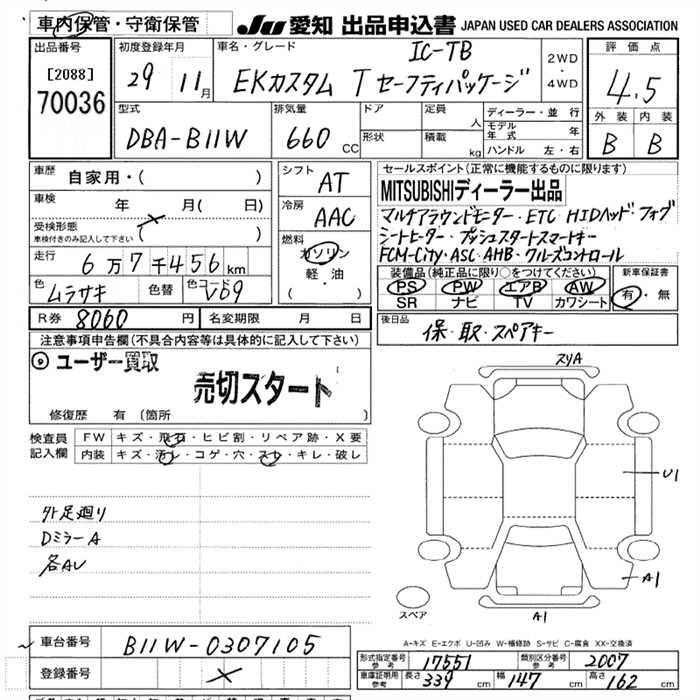 車内保管・守衛保管
JU 愛知 出品申込書 JAPAN USED CAR DEALERS ASSOCIATION
出品番号
[2088]
70036
初度登録年月
29 11月
車名・グレード
IC-TB
EKカスタム T セーフティパッケージ
2WD
・
4WD
評価点
4.5
外装 内装
B B
型式
DBA-B11W
排気量
660 CC
ドア
形状
定員 人
積載 kg
ディーラー・並行
モデル年式 年
ハンドル 左・右
車歴
自家用・( )
車検 年 月( )
受検形態
車検付きのみ記入して下さい ( )
走行
6万7千456km
色
ムラサキ
色替
色コード
V69
シフト
AT
冷房
AAC
燃料
ガソリン
軽・油
( )
セールスポイント(正常に機能するものに限ります)
MITSUBISHIディーラー出品
マルチアラウンドモニター・ETC HIDヘッド・フォグ
シートヒーター・プッシュスタートスマートキー
FCM-City・ASC・AHB・クルーズコントロール
装備品(純正品に限り○をつけてください)
PS PW エアB AW
SR ナビ TV カワシート
新車保証書
有・無
R券 8060 円
名変期限 月 日
後日品
保・取・スペアキー
注意事項申告欄(不具合内容等は具体的に記入して下さい)
ユーザー買取
売切スタート
修復歴 有(箇所 )
検査員
記入欄
FW キズ・飛石・ヒビ割・リペア跡・X要
内装 キズ・汚レ・コゲ・穴・スレ・キレ・破レ
外足廻り
DミラーA
各AU
スリA
U1
A1
A1
スペア
A-キズ E-エクボ U-凹み W-補修跡 S-サビ C-腐食 XX-交換済
車台番号 B11W-0307105
登録番号
形式指定番号
参考
17551
類別区分番号
参考
2007
車庫証明用
参考
長さ 339 cm 幅 147 cm 高さ 162 cm